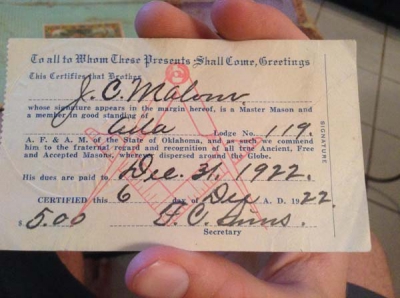 To all to Whom These Presents Shall Come, Greetings
This Certifies that Brother
J. C. Malow
whose signature appears in the margin hereof, is a Master Mason and
a member in good standing of
Ada Lodge No. 119.
A. F. & A. M. of the State of Oklahoma, and as such we commend
him to the fraternal regard and recognition of all true Ancient, Free
and Accepted Masons, wherever dispersed around the Globe.
His dues are paid to Dec. 31, 1922.
CERTIFIED this 6 day of Dec A. D. 1922
$5.00 F. C.
Secretary
SIGNATURE